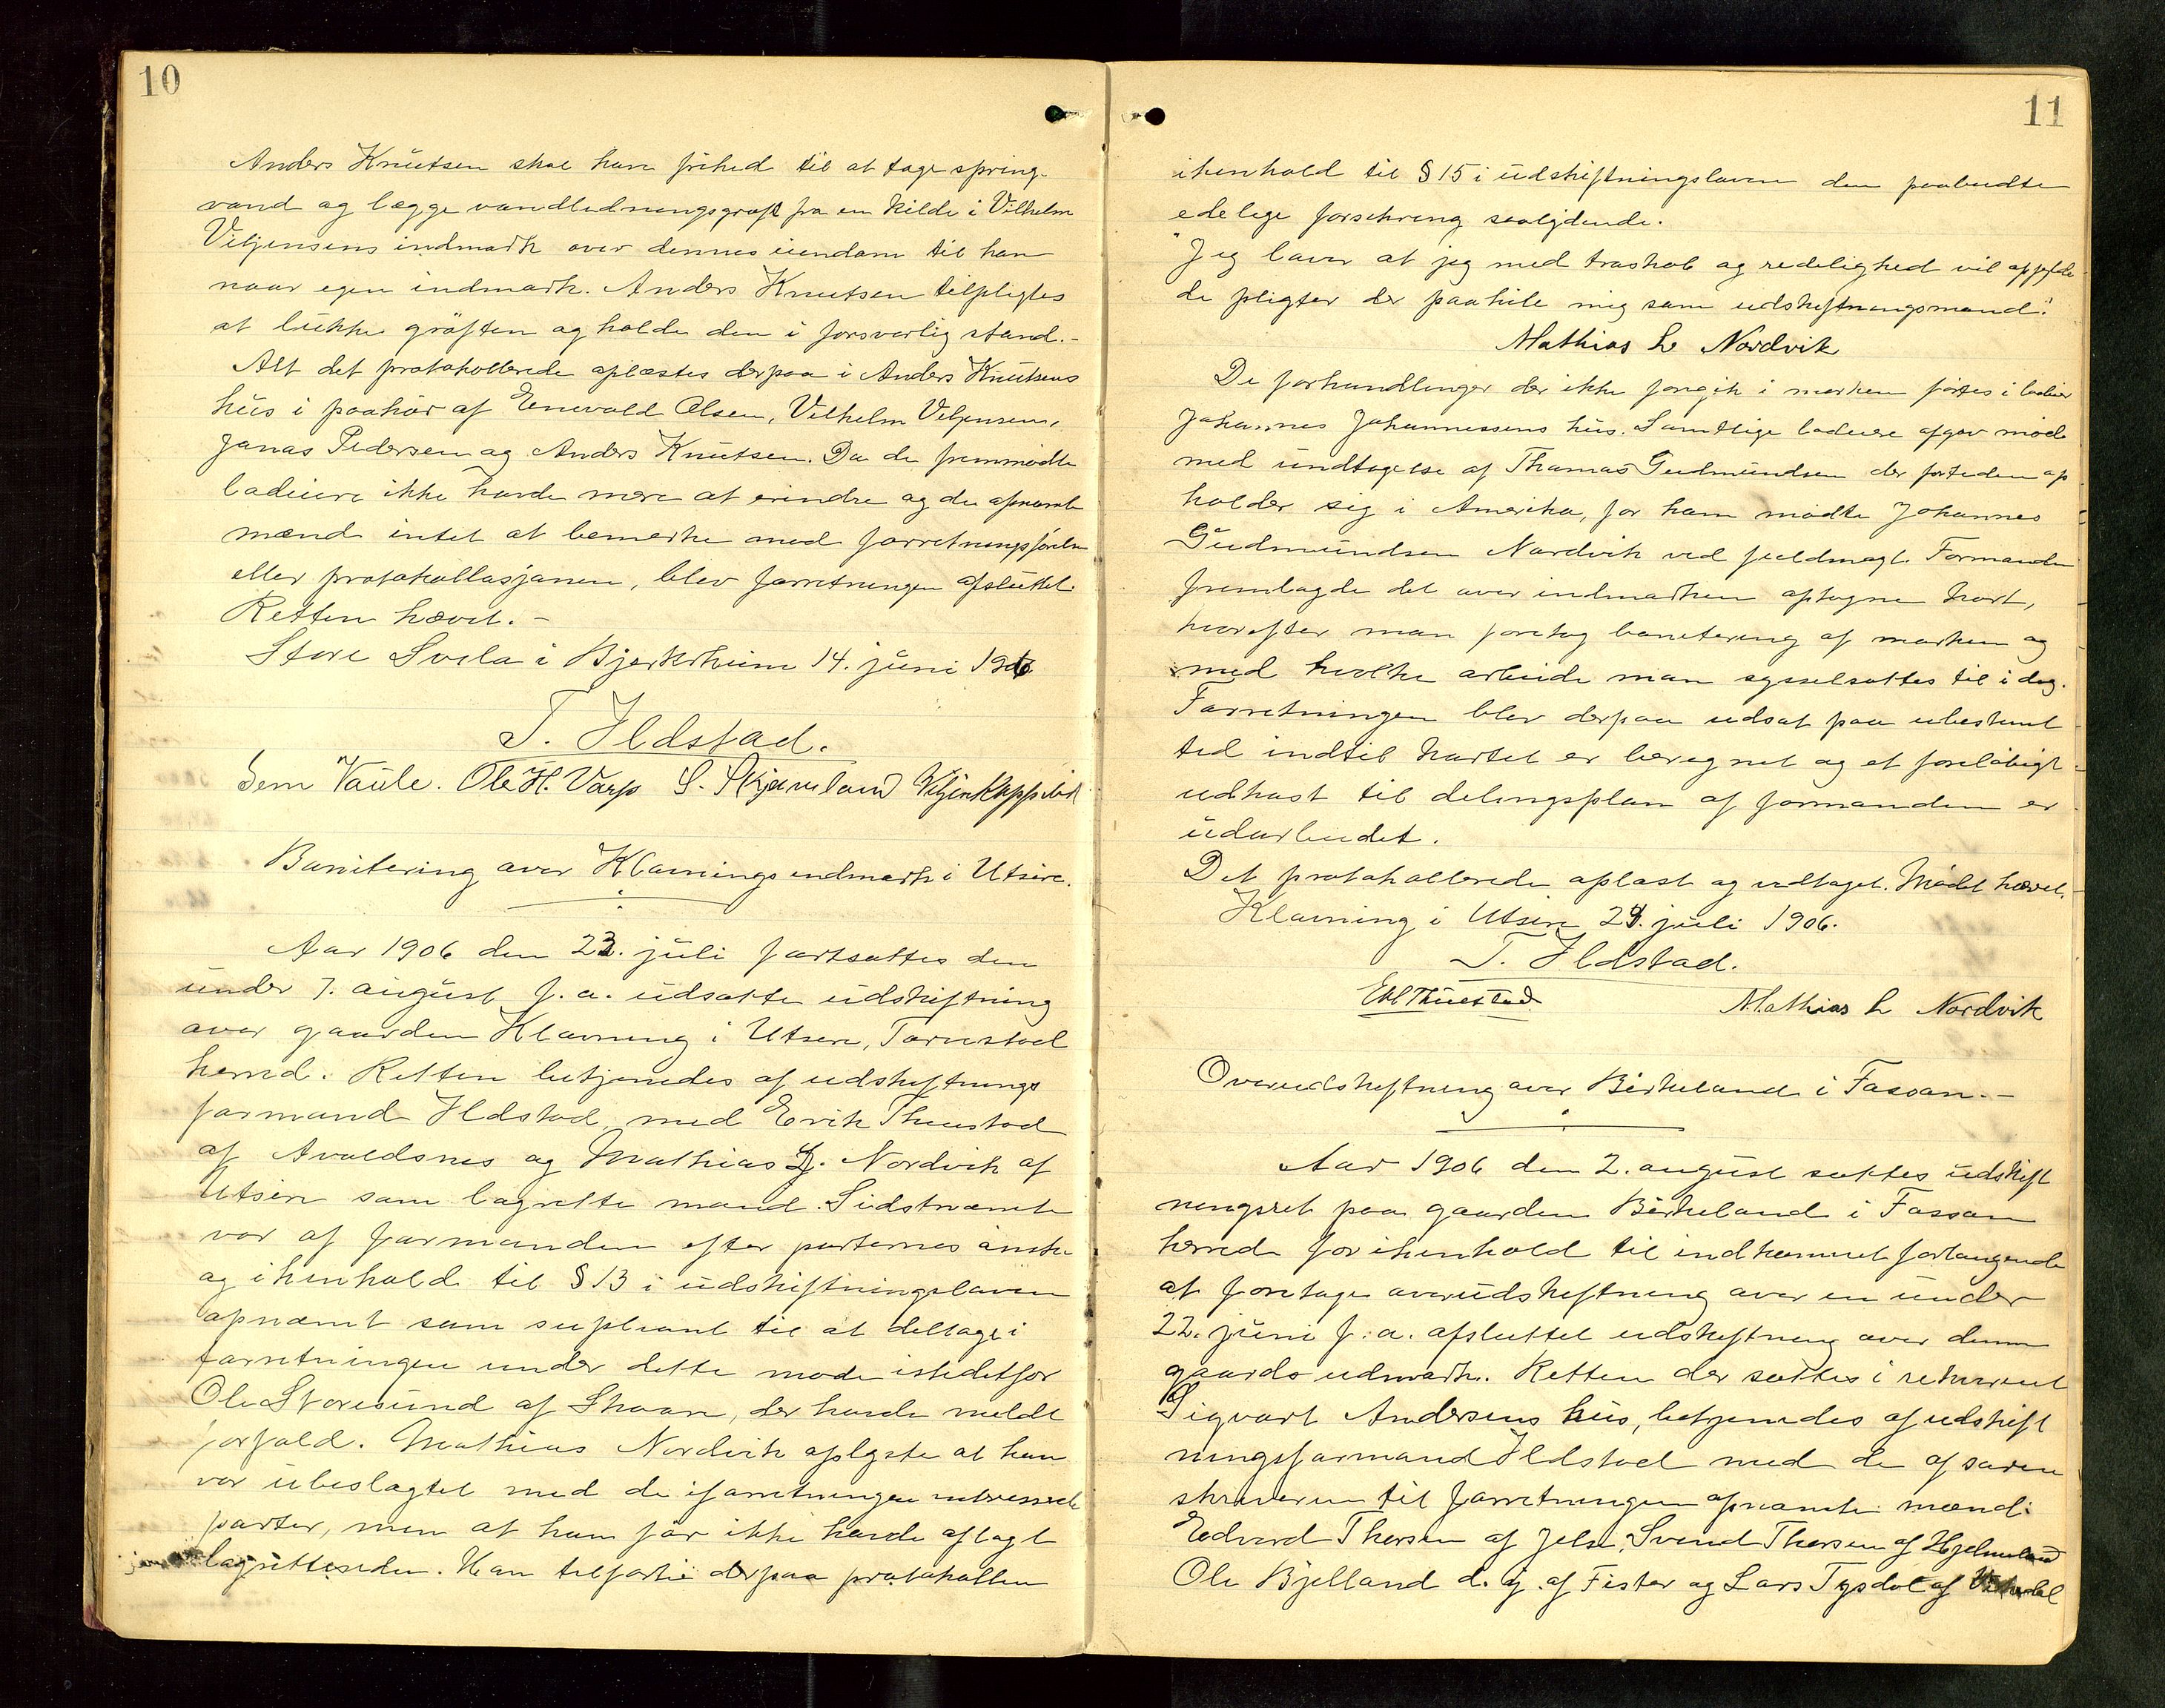 10
Anders Knutsen skal have frihed til at tage spring-
vand og lægge vandledningsgrøft fra en kilde i Vilhelm
Veljensens indmark over dennes eiendom til han
naar egen indmark. Anders Knutsen tilpligtes
at lukke grøften og holde den i forsvarlig stand.-
Alt det protokollerede oplæstes derpaa i Anders Knutsens
hus i paahør af Enevald Olsen, Vilhelm Veljensen,
Jonas Pedersen og Anders Knutsen. Da de fremmødte
lodeiere ikke havde mere at erindre og de opnævnte
mænd intet at bemerke med forretningsførelsen
eller protokollasjonen, blev forretningen afsluttet.
Retten hævet.-
Store Svela i Bjerkrheim 14. juni 1906
T. Ildstad.
Sem Vaule. Ole H. Varp S. Skjæveland
Bonitering over Klovnings indmark i Utsire.
Aar 1906 den 23. juli fortsattes den
under 7. august f. a. udsatte udskiftning
over gaarden Klovning i Utsire, Torvestad
herred. Retten betjenedes af udskiftnings
formand Ildstad med Erik Thuestad
af Avaldsnes og Mathias L. Nordvik af
Utsire som lagrette mænd. Sidstnævnte
var af formanden efter parternes ønske
og ihenhold til § 13 i udskiftningsloven
opnævnt som supleant til at deltage i
forretningen under dette møde istedetfor
Ole Storesund af Skaare, der havde meldt
forfald. Mathias Nordvik oplyste at han
var ubeslægtet med de i forretningen interesserede
parter, men at han før ikke havde aflagt
lagretteseden. Han tilførte derpaa protokollen
11
ihenhold til § 15 i udskiftningsloven den paabudte
edelige forsikring saalydende.
"Jeg lover at jeg med troskab og redelighed vil opfylde
de pligter der paahvile mig som udskiftningsmand."
Mathias L Nordvik
De forhandlinger der ikke foregik i marken førtes i lodeier
Johannes Johannessens hus. Samtlige lodeiere afgav møde
med undtagelse af Thomas Gudmundsen der fortiden op
holder sig i Amerika, for ham mødte Johannes
Gudmundsen Nordvik ved fuldmagt. Formanden
fremlagde det over indmarken optagne kart,
hvorefter man foretog bonitering af marken og
med hvilke arbeide man sysselsattes til i dag.
Forretningen blev derpaa udsat paa ubestemt
tid indtil kartet er beregnet og et foreløbigt
udkast til delingsplan af formanden er
udarbeidet.
Det protokollerede oplæst og vedtaget. Mødet hævet.
Klovning i Utsire 24. juli 1906.
T. Ildstad.
E Thuestad Mathias L Nordvik
Overudskiftning over Birkeland i Fossan.-
Aar 1906 den 2. august sattes udskift
ningsret paa gaarden Birkeland i Fossan
herred for ihenhold til indkommet forlangende
at foretage overudskiftning over en under
22. juni f. a. afsluttet udskiftning over denne
gaards udmark. Retten der sattes i rekvirent
Sigvart Andersens hus, betjenedes af udskift
ningsformand Ildstad med de af soren
skriveren til forretningen opnævnte mænd:
Edvard Thorsen af Jelse, Svend Thorsen af Hjelmeland
Ole Bjelland d. y. af Fister og Lars Tysdal af